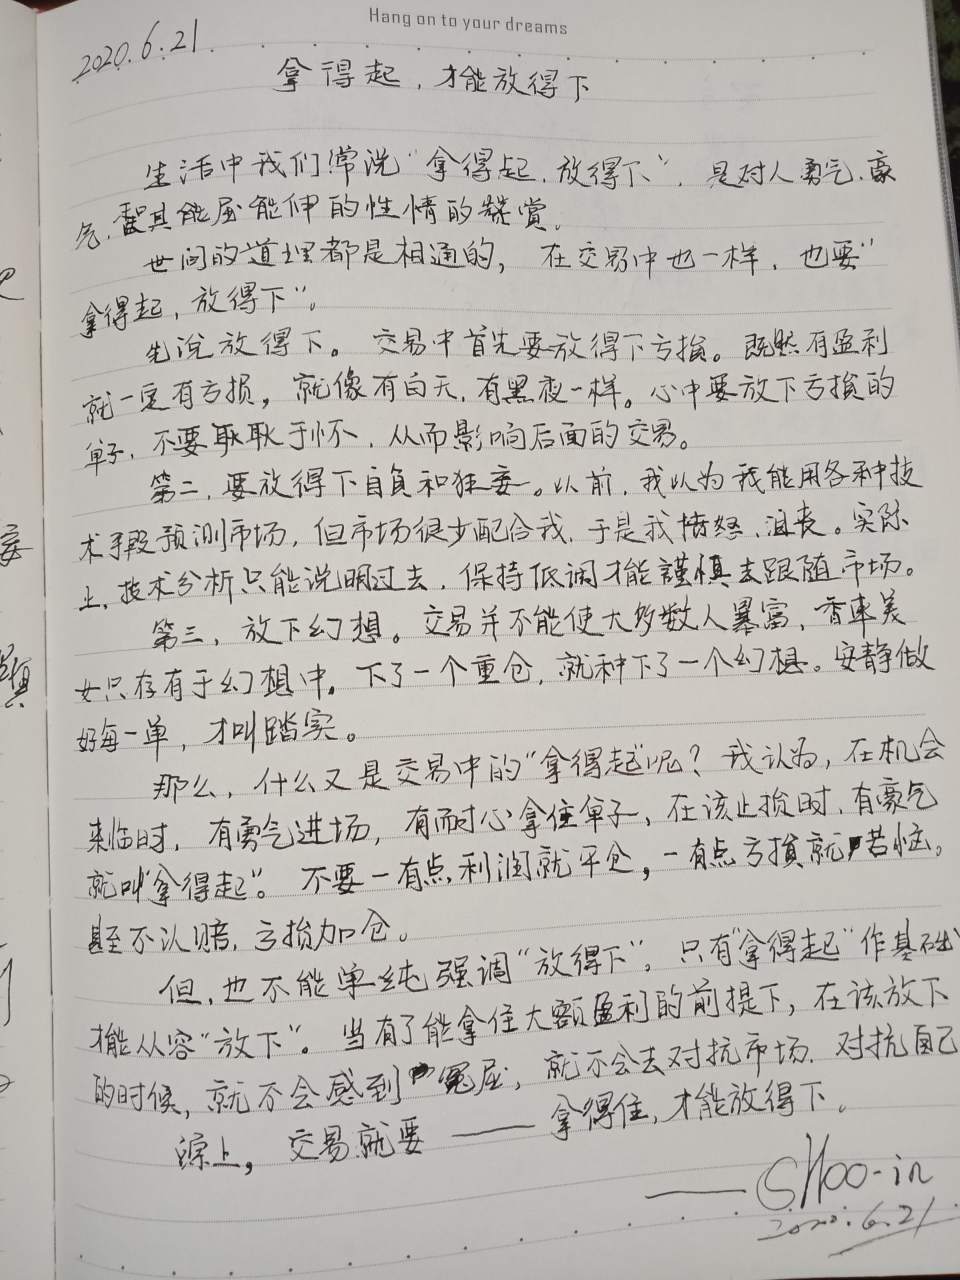 Hang on to your dreams
2020.6.21
拿得起，才能放得下
生活中我们常说“拿得起，放得下”，是对人勇气、豪
气，其能屈能伸的性情的赞赏。
世间的道理都是相通的，在交易中也一样，也要“
拿得起，放得下”。
先说放得下。交易中首先要放得下亏损。既然有盈利
就一定有亏损，就像有白天，有黑夜一样。心中要放下亏损的
单子，不要耿耿于怀，从而影响后面的交易。
第二，要放得下自负和狂妄。以前，我以为我能用各种技
术手段预测市场，但市场很少配合我，于是我愤怒、沮丧。实际
上，技术分析只能说明过去，保持低调才能谨慎去跟随市场。
第三，放下幻想。交易并不能使大多数人暴富，香车美
女只存有于幻想中。下了一个重仓，就种下了一个幻想。安静做
好每一单，才叫踏实。
那么，什么又是交易中的“拿得起”呢？我认为，在机会
来临时，有勇气进场，有耐心拿住单子，在该止损时，有豪气
就叫“拿得起”。不要一有点利润就平仓，一有点亏损就苦恼，
甚至不认赔，亏损加仓。
但，也不能单纯强调“放得下”，只有“拿得起”作基础
才能从容“放下”。当有了能拿住大额盈利的前提下，在该放下
的时候，就不会感到冤屈，就不会去对抗市场、对抗自己
综上，交易就要——拿得住，才能放得下。
——Shoo-in
2020.6.21